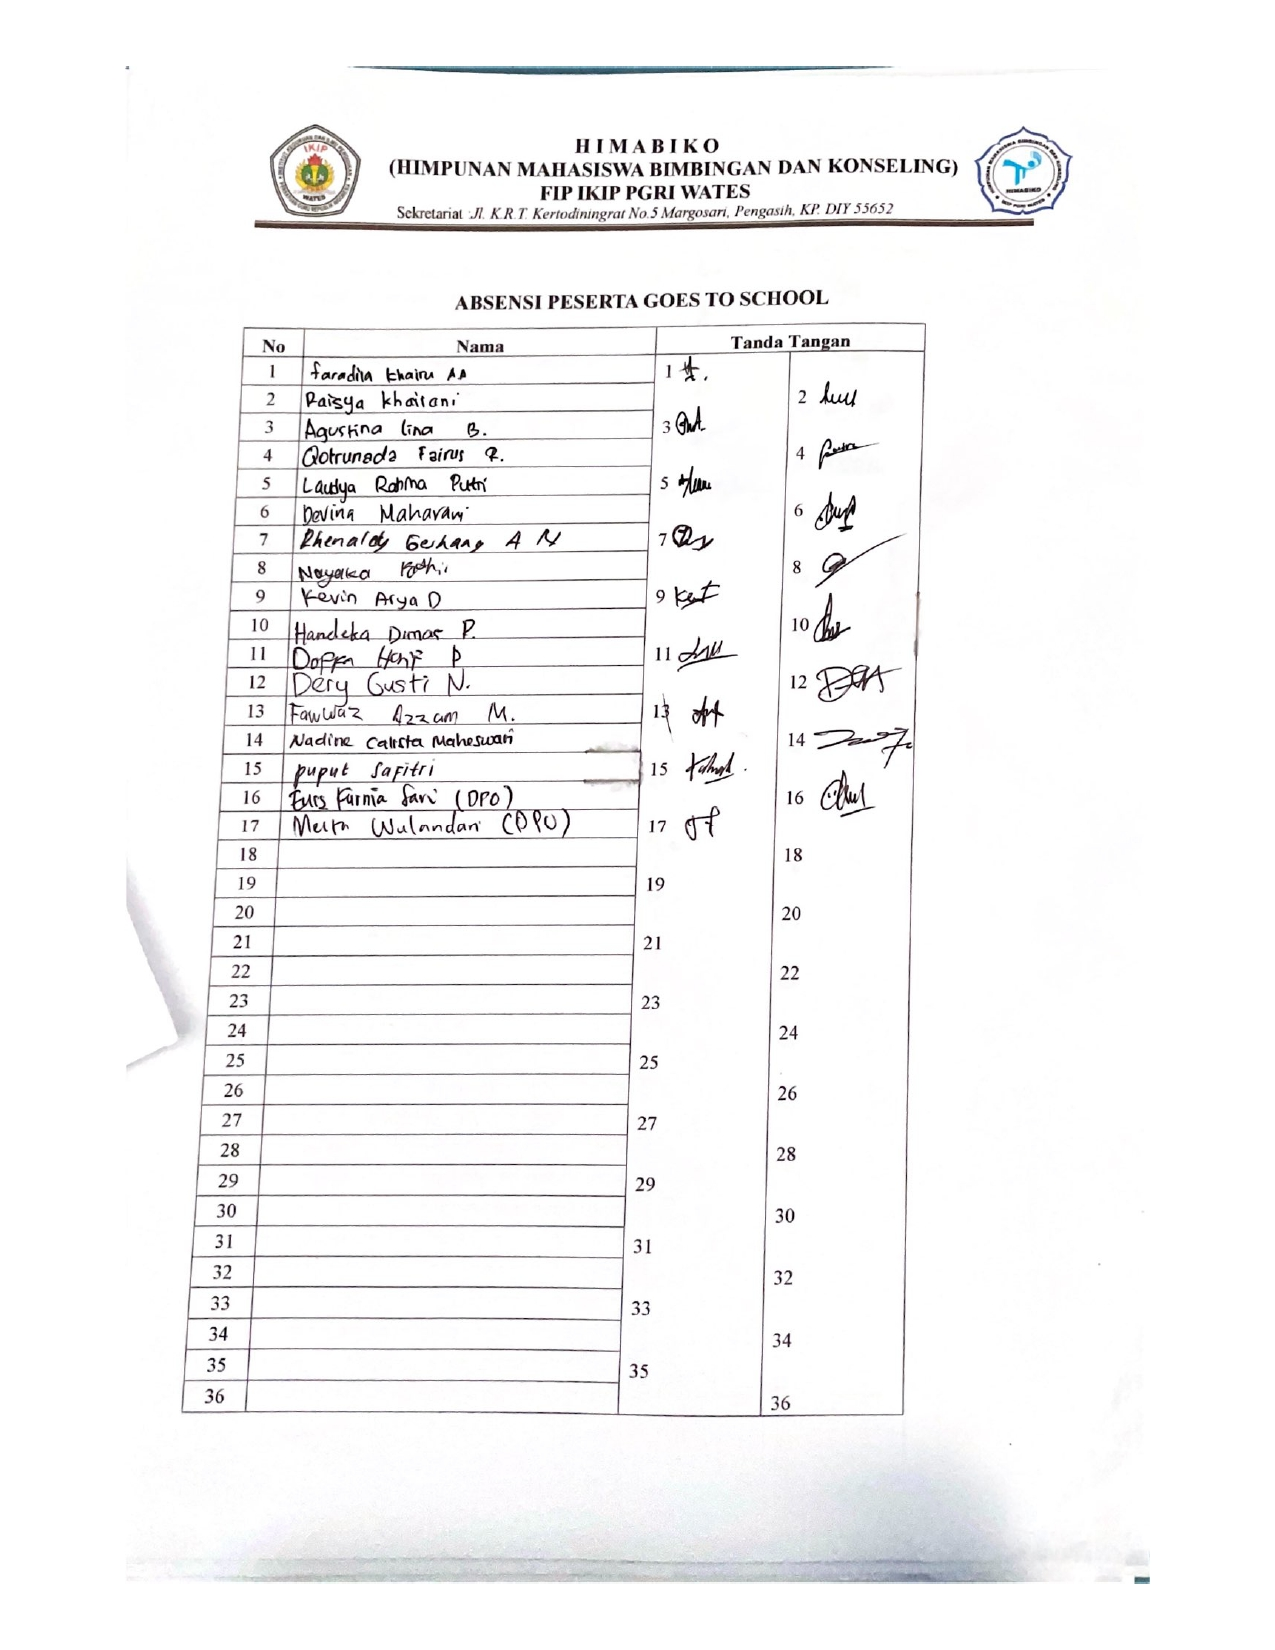 HIMABIKO
(HIMPUNAN MAHASISWA BIMBINGAN DAN KONSELING)
FIP IKIP PGRI WATES
Sekretariat :Jl. K.R.T. Kertodiningrat No.5 Margosari, Pengasih, KP. DIY 55652
IKIP
WATES
HIMABIKO
ABSENSI PESERTA GOES TO SCHOOL
No Nama Tanda Tangan
1 Faradila Khairu AA 1
2 Raisya Khairani 2
3 Agustina lina B. 3
4 Qotrunada Fairus R. 4
5 Laudya Rahma Putri 5
6 Devina Maharani 6
7 Rhenaldy Gerhang A N 7
8 Nayaka 8
9 Kevin Arya D 9
10 Handeka Dimas P. 10
11 Daffa Hanif P 11
12 Dery Gusti N. 12
13 Fawwaz Azzam M. 13
14 Nadine Calista Maheswari 14
15 puput Safitri 15
16 Kurnia Sari (DPO) 16
17 Wulandari (DPO) 17
18 18
19 19
20 20
21 21
22 22
23 23
24 24
25 25
26 26
27 27
28 28
29 29
30 30
31 31
32 32
33 33
34 34
35 35
36 36